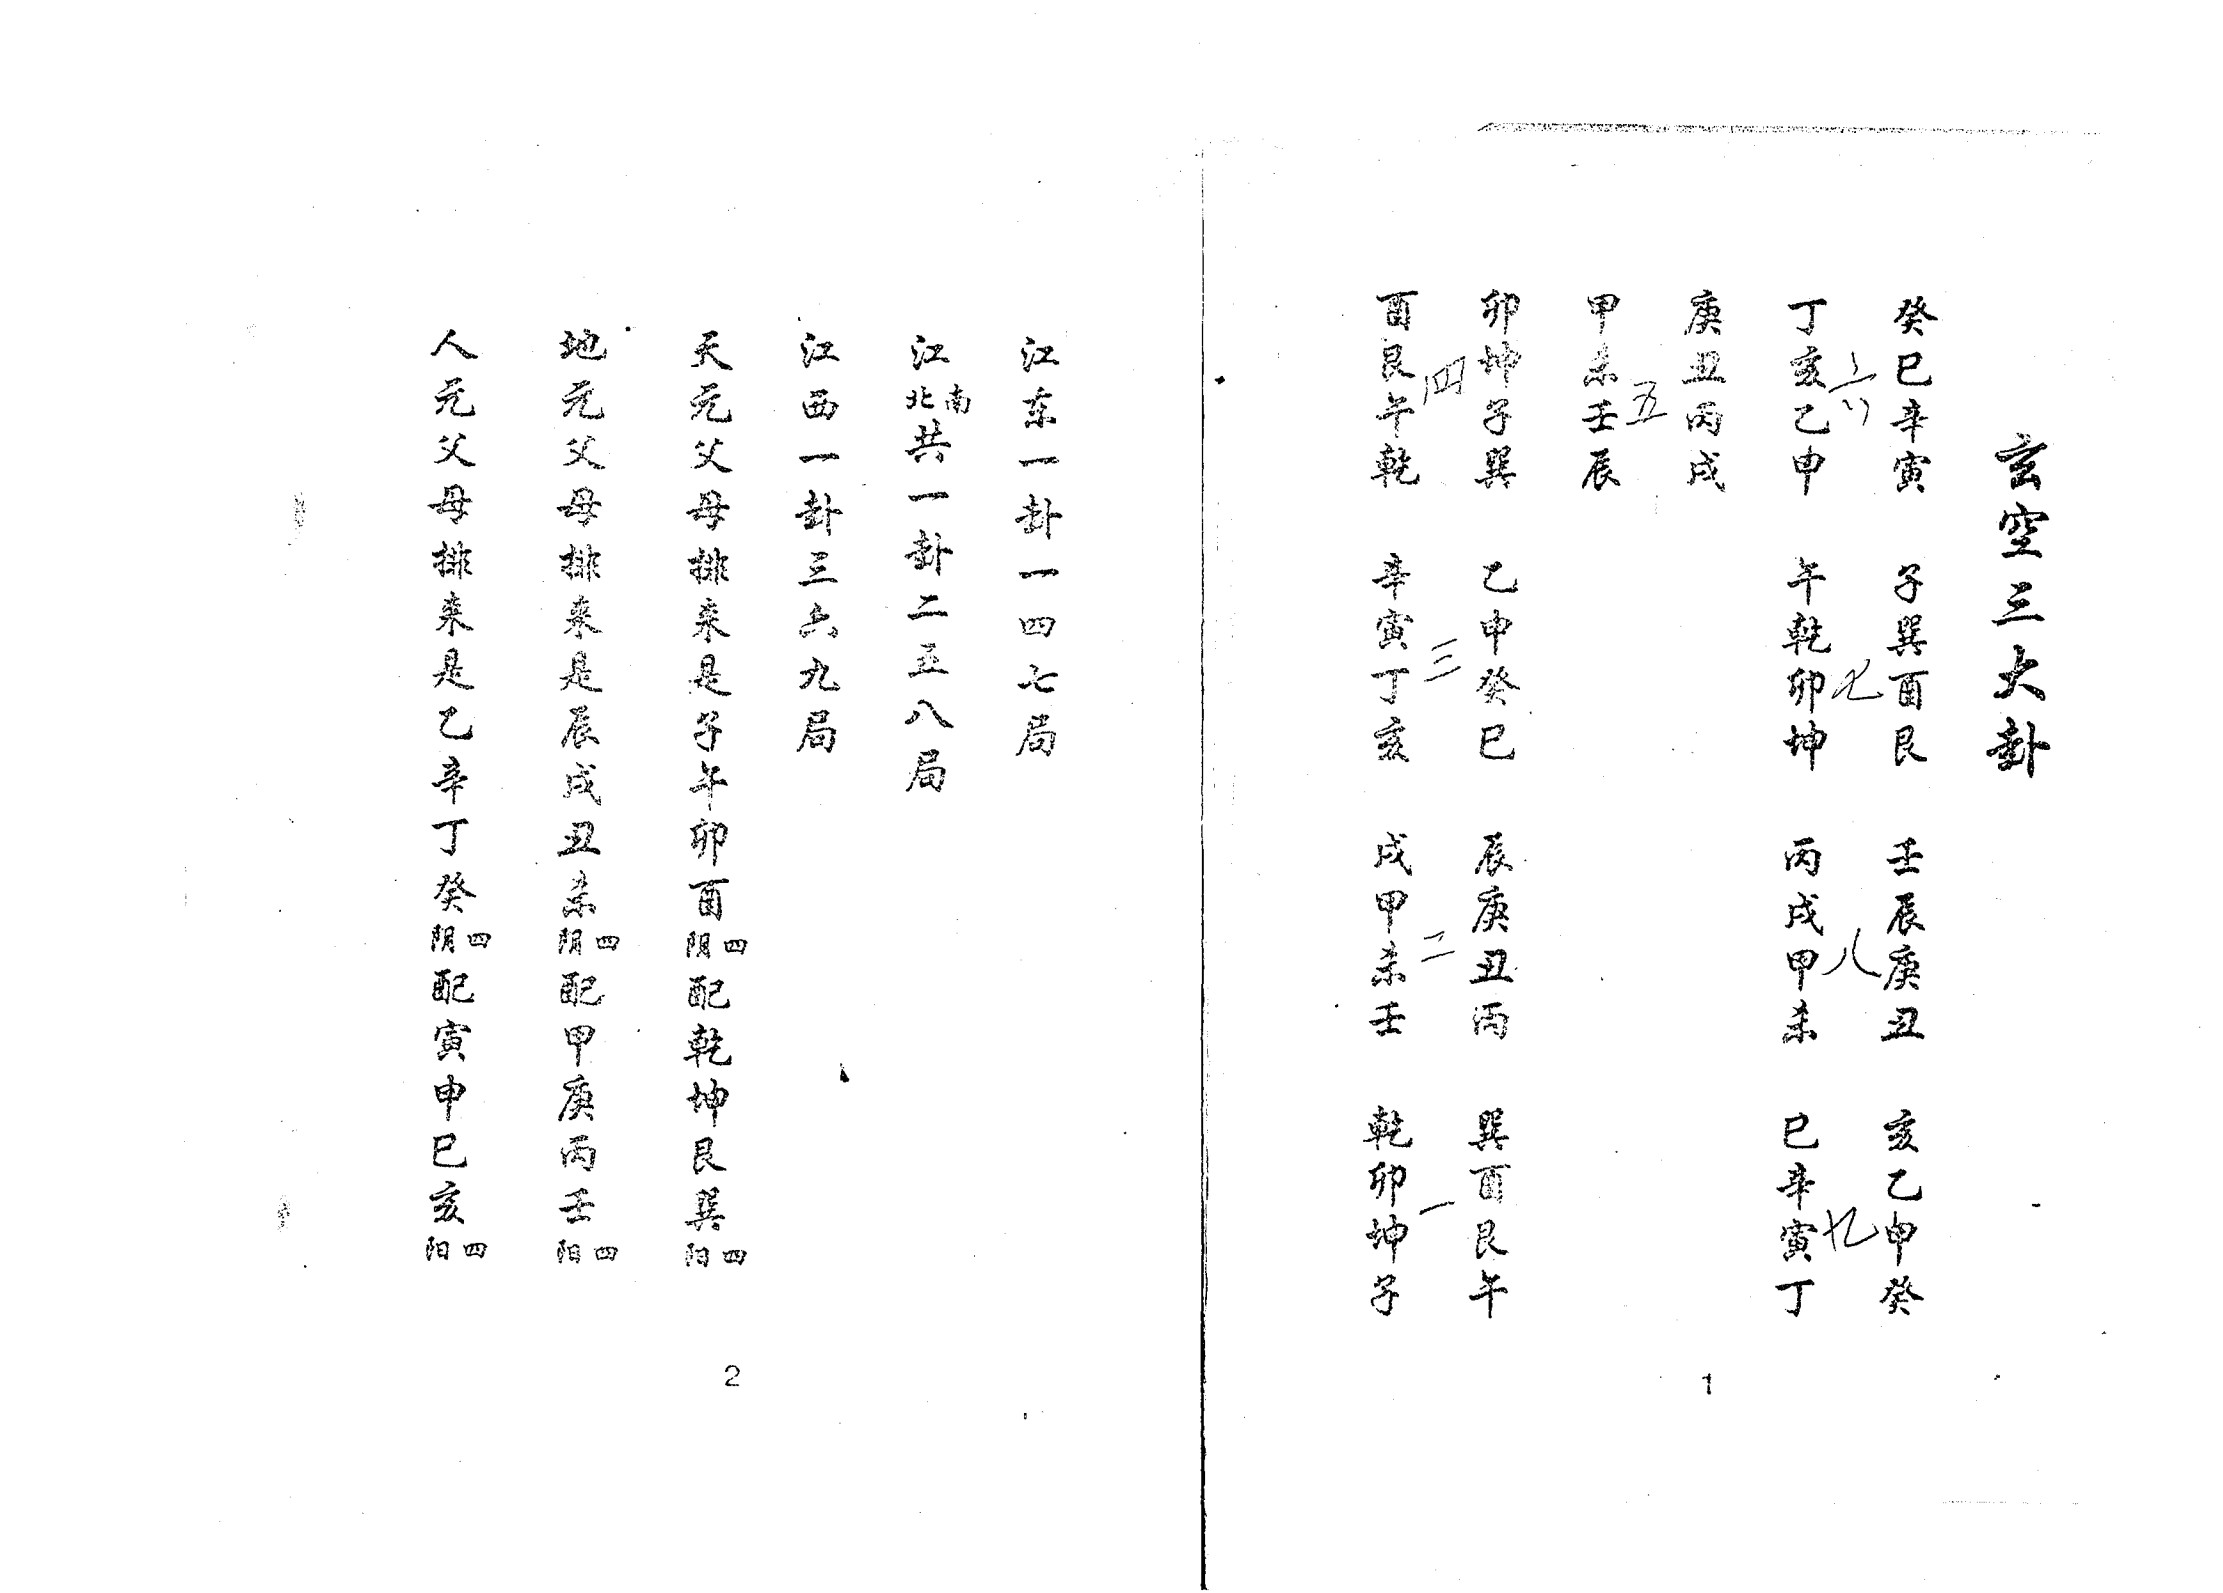 玄空三大卦
癸巳辛寅　子巽酉艮　壬辰庚丑　亥乙申癸
六　七　八　九
丁亥乙申　午乾卯坤　丙戌甲未　巳辛寅丁
庚丑丙戌
五
甲未壬辰
卯坤子巽　乙申癸巳　辰庚丑丙　巽酉艮午
四　三　二　一
酉艮午乾　辛寅丁亥　戌甲未壬　乾卯坤子
1
江东一卦一四七局
江南北共一卦二五八局
江西一卦三六九局
天元父母排来是子午卯酉四阴配乾坤艮巽四阳
地元父母排来是辰戌丑未四阴配甲庚丙壬四阳
人元父母排来是乙辛丁癸四阴配寅申巳亥四阳
2